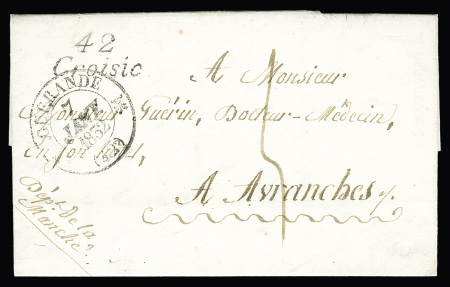 42
Croisic
GUÉRANDE
7
JANV
1832
(42)
A Monsieur
Monsieur Guérin, Docteur-Médecin,
en son
A Avranches
Dépt de la
Manche.
5